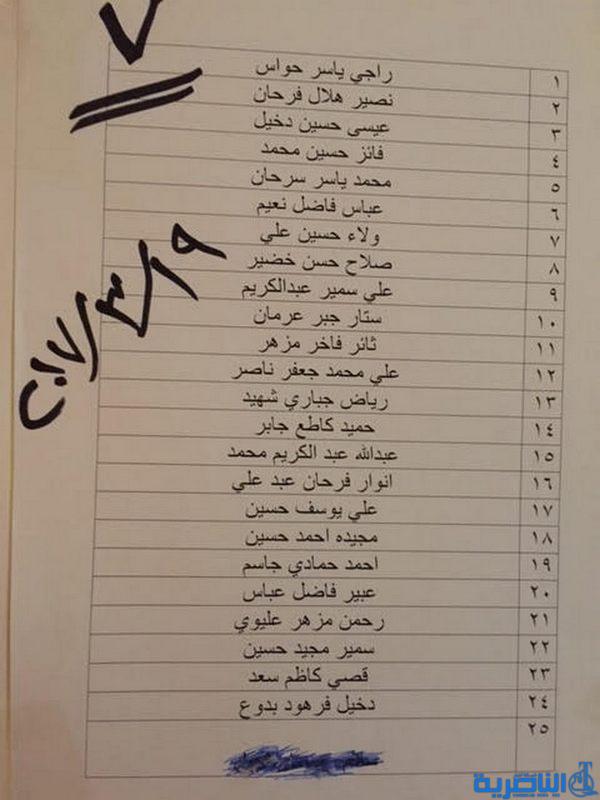 ١ راجي ياسر حواس
٢ نصير هلال فرحان
٣ عيسى حسين دخيل
٤ فائز حسين محمد
٥ محمد ياسر سرحان
٦ عباس فاضل نعيم
٧ ولاء حسين علي
٨ صلاح حسن خضير
٩ علي سمير عبدالكريم
١٠ ستار جبر عرمان
١١ ثائر فاخر مزهر
١٢ علي محمد جعفر ناصر
١٣ رياض جباري شهيد
١٤ حميد كاطع جابر
١٥ عبدالله عبد الكريم محمد
١٦ انوار فرحان عبد علي
١٧ علي يوسف حسين
١٨ مجيده احمد حسين
١٩ احمد حمادي جاسم
٢٠ عبير فاضل عباس
٢١ رحمن مزهر عليوي
٢٢ سمير مجيد حسين
٢٣ قصي كاظم سعد
٢٤ دخيل فرهود بدوع
٢٥
٢٠١٧/٣/١٩
الناصرية